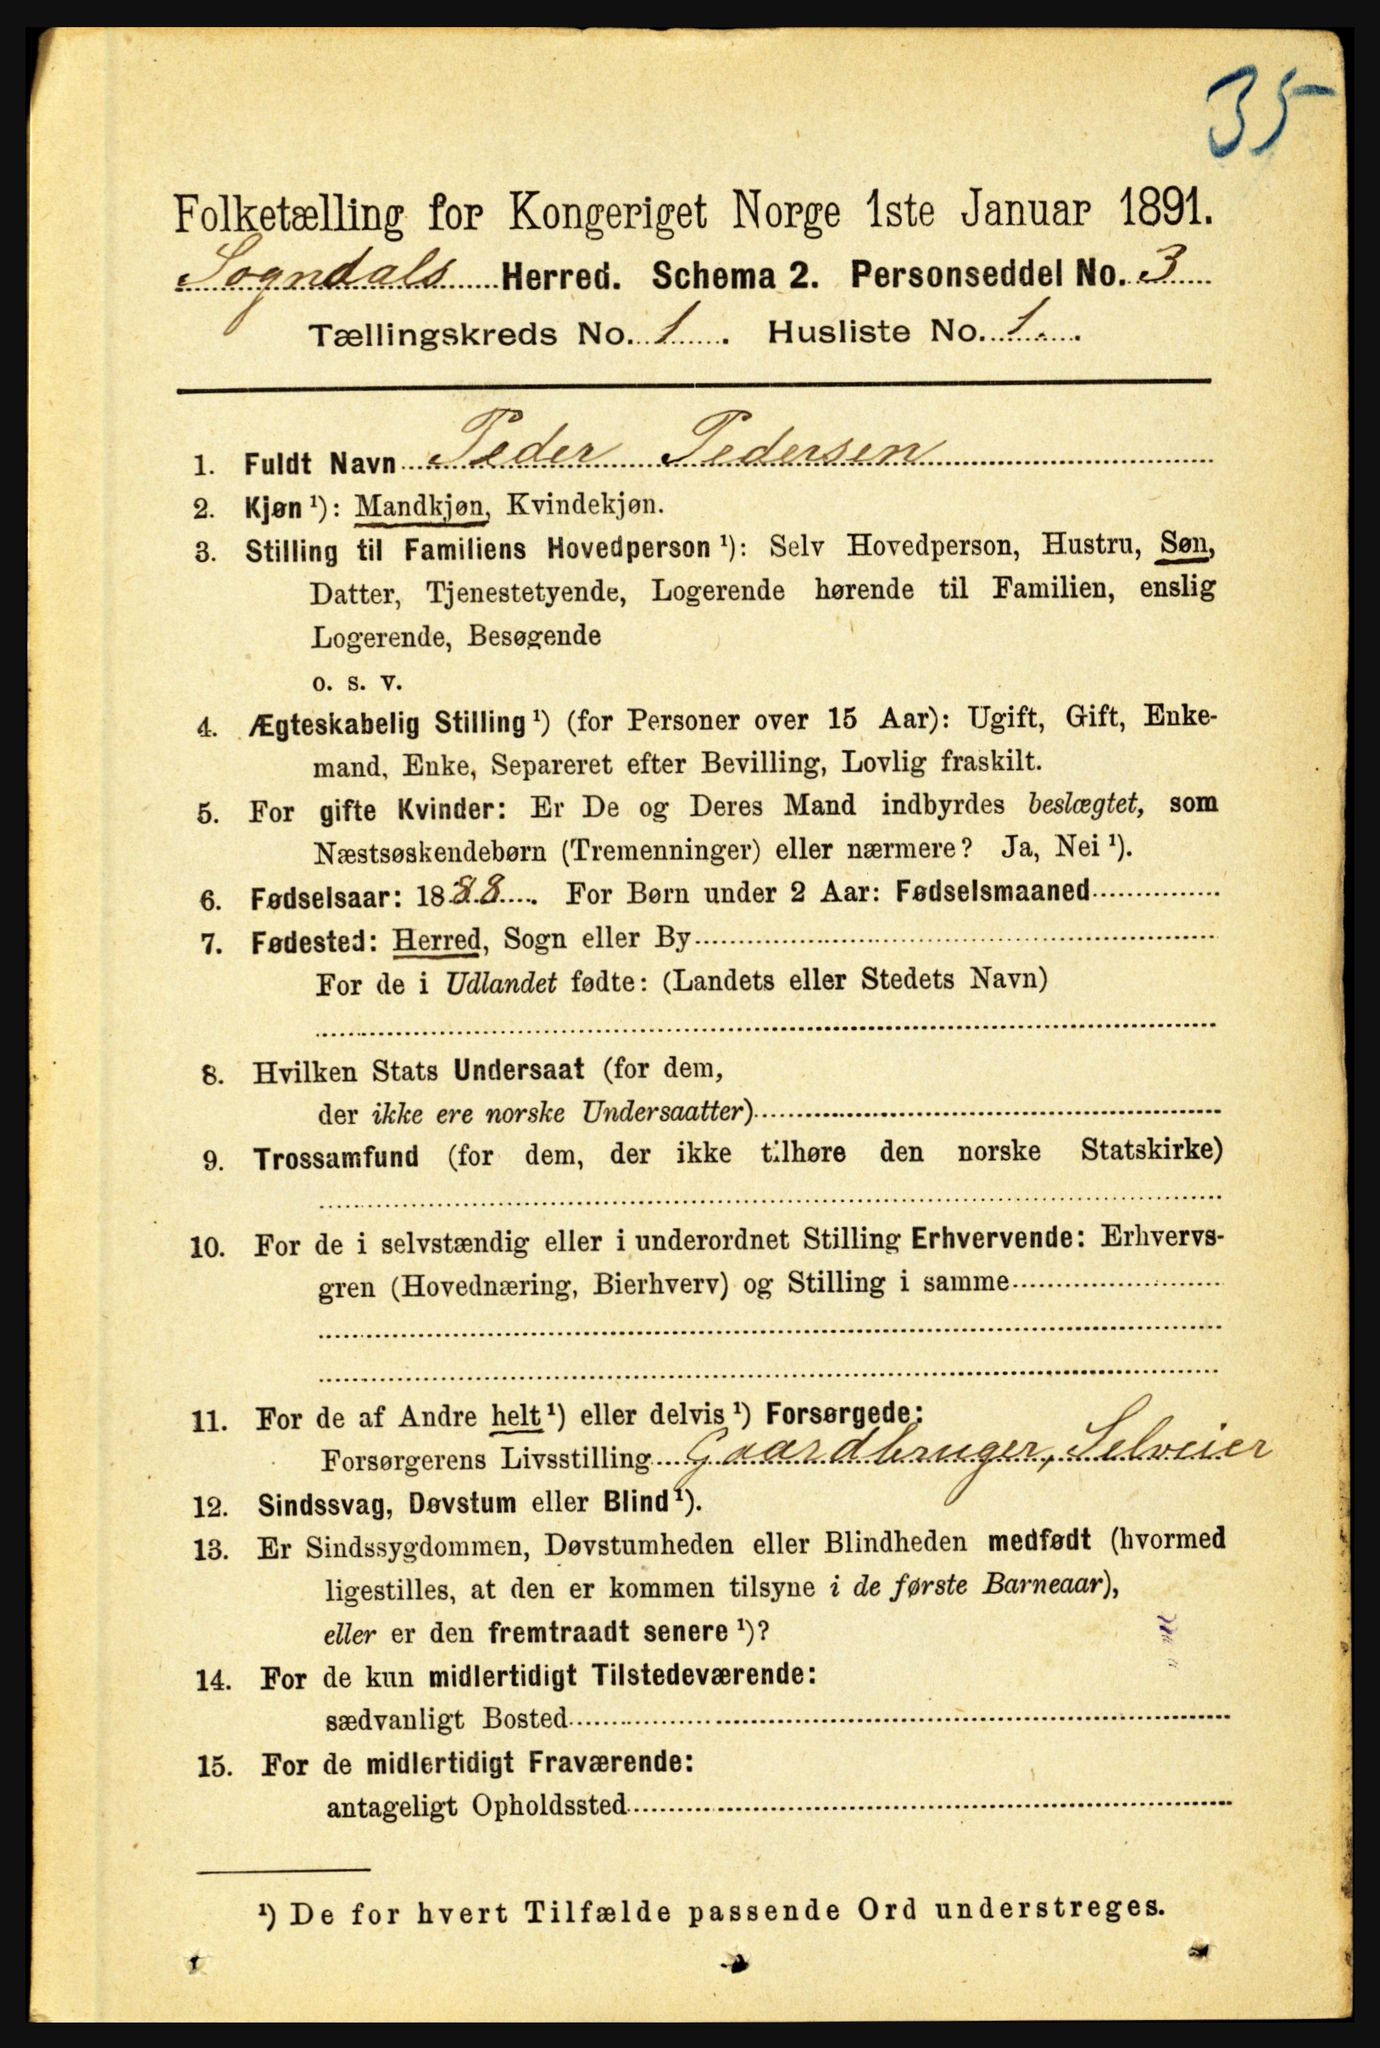 35
Folketælling for Kongeriget Norge 1ste Januar 1891.
Sogndals Herred. Schema 2. Personseddel No. 3
Tællingskreds No. 1. Husliste No. 1.
1. Fuldt Navn Peder Pedersen
2. Kjøn ¹): Mandkjøn, Kvindekjøn.
3. Stilling til Familiens Hovedperson ¹): Selv Hovedperson, Hustru, Søn,
Datter, Tjenestetyende, Logerende hørende til Familien, enslig
Logerende, Besøgende
o. s. v.
4. Ægteskabelig Stilling ¹) (for Personer over 15 Aar): Ugift, Gift, Enke-
mand, Enke, Separeret efter Bevilling, Lovlig fraskilt.
5. For gifte Kvinder: Er De og Deres Mand indbyrdes beslægtet, som
Næstsøskendebørn (Tremenninger) eller nærmere? Ja, Nei ¹).
6. Fødselsaar: 1888. For Børn under 2 Aar: Fødselsmaaned
7. Fødested: Herred, Sogn eller By
For de i Udlandet fødte: (Landets eller Stedets Navn)
8. Hvilken Stats Undersaat (for dem,
der ikke ere norske Undersaatter)
9. Trossamfund (for dem, der ikke tilhøre den norske Statskirke)
10. For de i selvstændig eller i underordnet Stilling Erhvervende: Erhvervs-
gren (Hovednæring, Bierhverv) og Stilling i samme
11. For de af Andre helt ¹) eller delvis ¹) Forsørgede:
Forsørgerens Livsstilling Gaardbruger, Selveier
12. Sindssvag, Døvstum eller Blind ¹).
13. Er Sindssygdommen, Døvstumheden eller Blindheden medfødt (hvormed
ligestilles, at den er kommen tilsyne i de første Barneaar),
eller er den fremtraadt senere ¹)?
14. For de kun midlertidigt Tilstedeværende:
sædvanligt Bosted
15. For de midlertidigt Fraværende:
antageligt Opholdssted
¹) De for hvert Tilfælde passende Ord understreges.